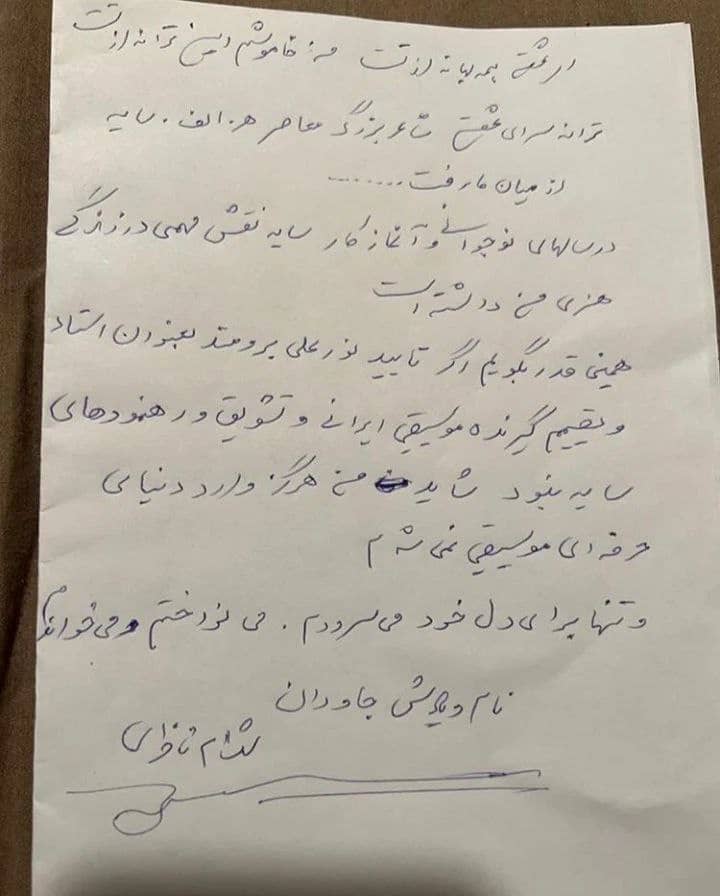 ای عشق همه بهانه از تست من خاموشم این ترانه از تست
ترانه سرای عشق شاعر بزرگ معاصر ه. الف. سایه
از میان ما رفت........
در سالهای نوجوانی و آغاز کار سایه نقش مهمی در زندگی
هنری من داشته است
همینقدر بگویم اگر تایید نورعلی برومند بعنوان استاد
و تصمیم گیرنده موسیقی ایرانی و تشویق و رهنمودهای
سایه نبود شاید من هرگز وارد دنیای
حرفه ای موسیقی نمی شدم
و تنها برای دل خود می سرودم. می نواختم و می خواندم
نام و یادش جاودان
شهرام ناظری